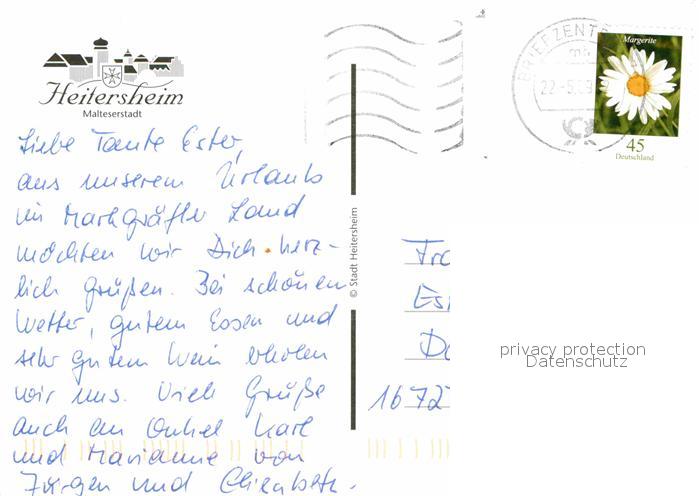 Heitersheim
Malteserstadt
Liebe Tante Ester,
aus unserem Urlaub
im Markgräfler Land
möchten wir Dich herz-
lich grüßen. Bei schönem
Wetter, gutem Essen und
sehr gutem Wein erholen
wir uns. Viele Grüße
auch an Onkel Karl
und Marianne von
Jürgen und Elisabeth.
© Stadt Heitersheim
BRIEFZENT
22.-5.09
Margerite
45
Deutschland
Fra
Es
1672
privacy protection
Datenschutz